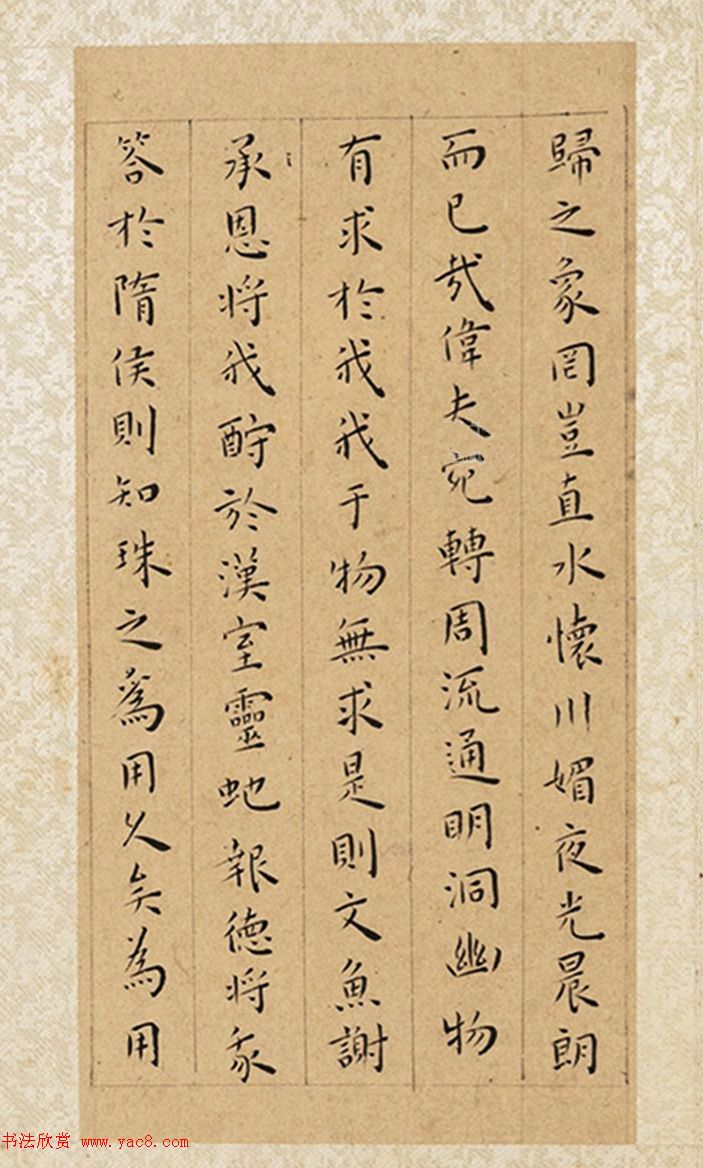 歸之象罔豈直水懷川媚夜光晨朗
而已哉偉夫宛轉周流通明洞幽物
有求於我我于物無求是則文魚謝
承恩將我酧於漢室靈虵報德將我
答於隋侯則知珠之為用久矣為用
书法欣赏 www.yac8.com